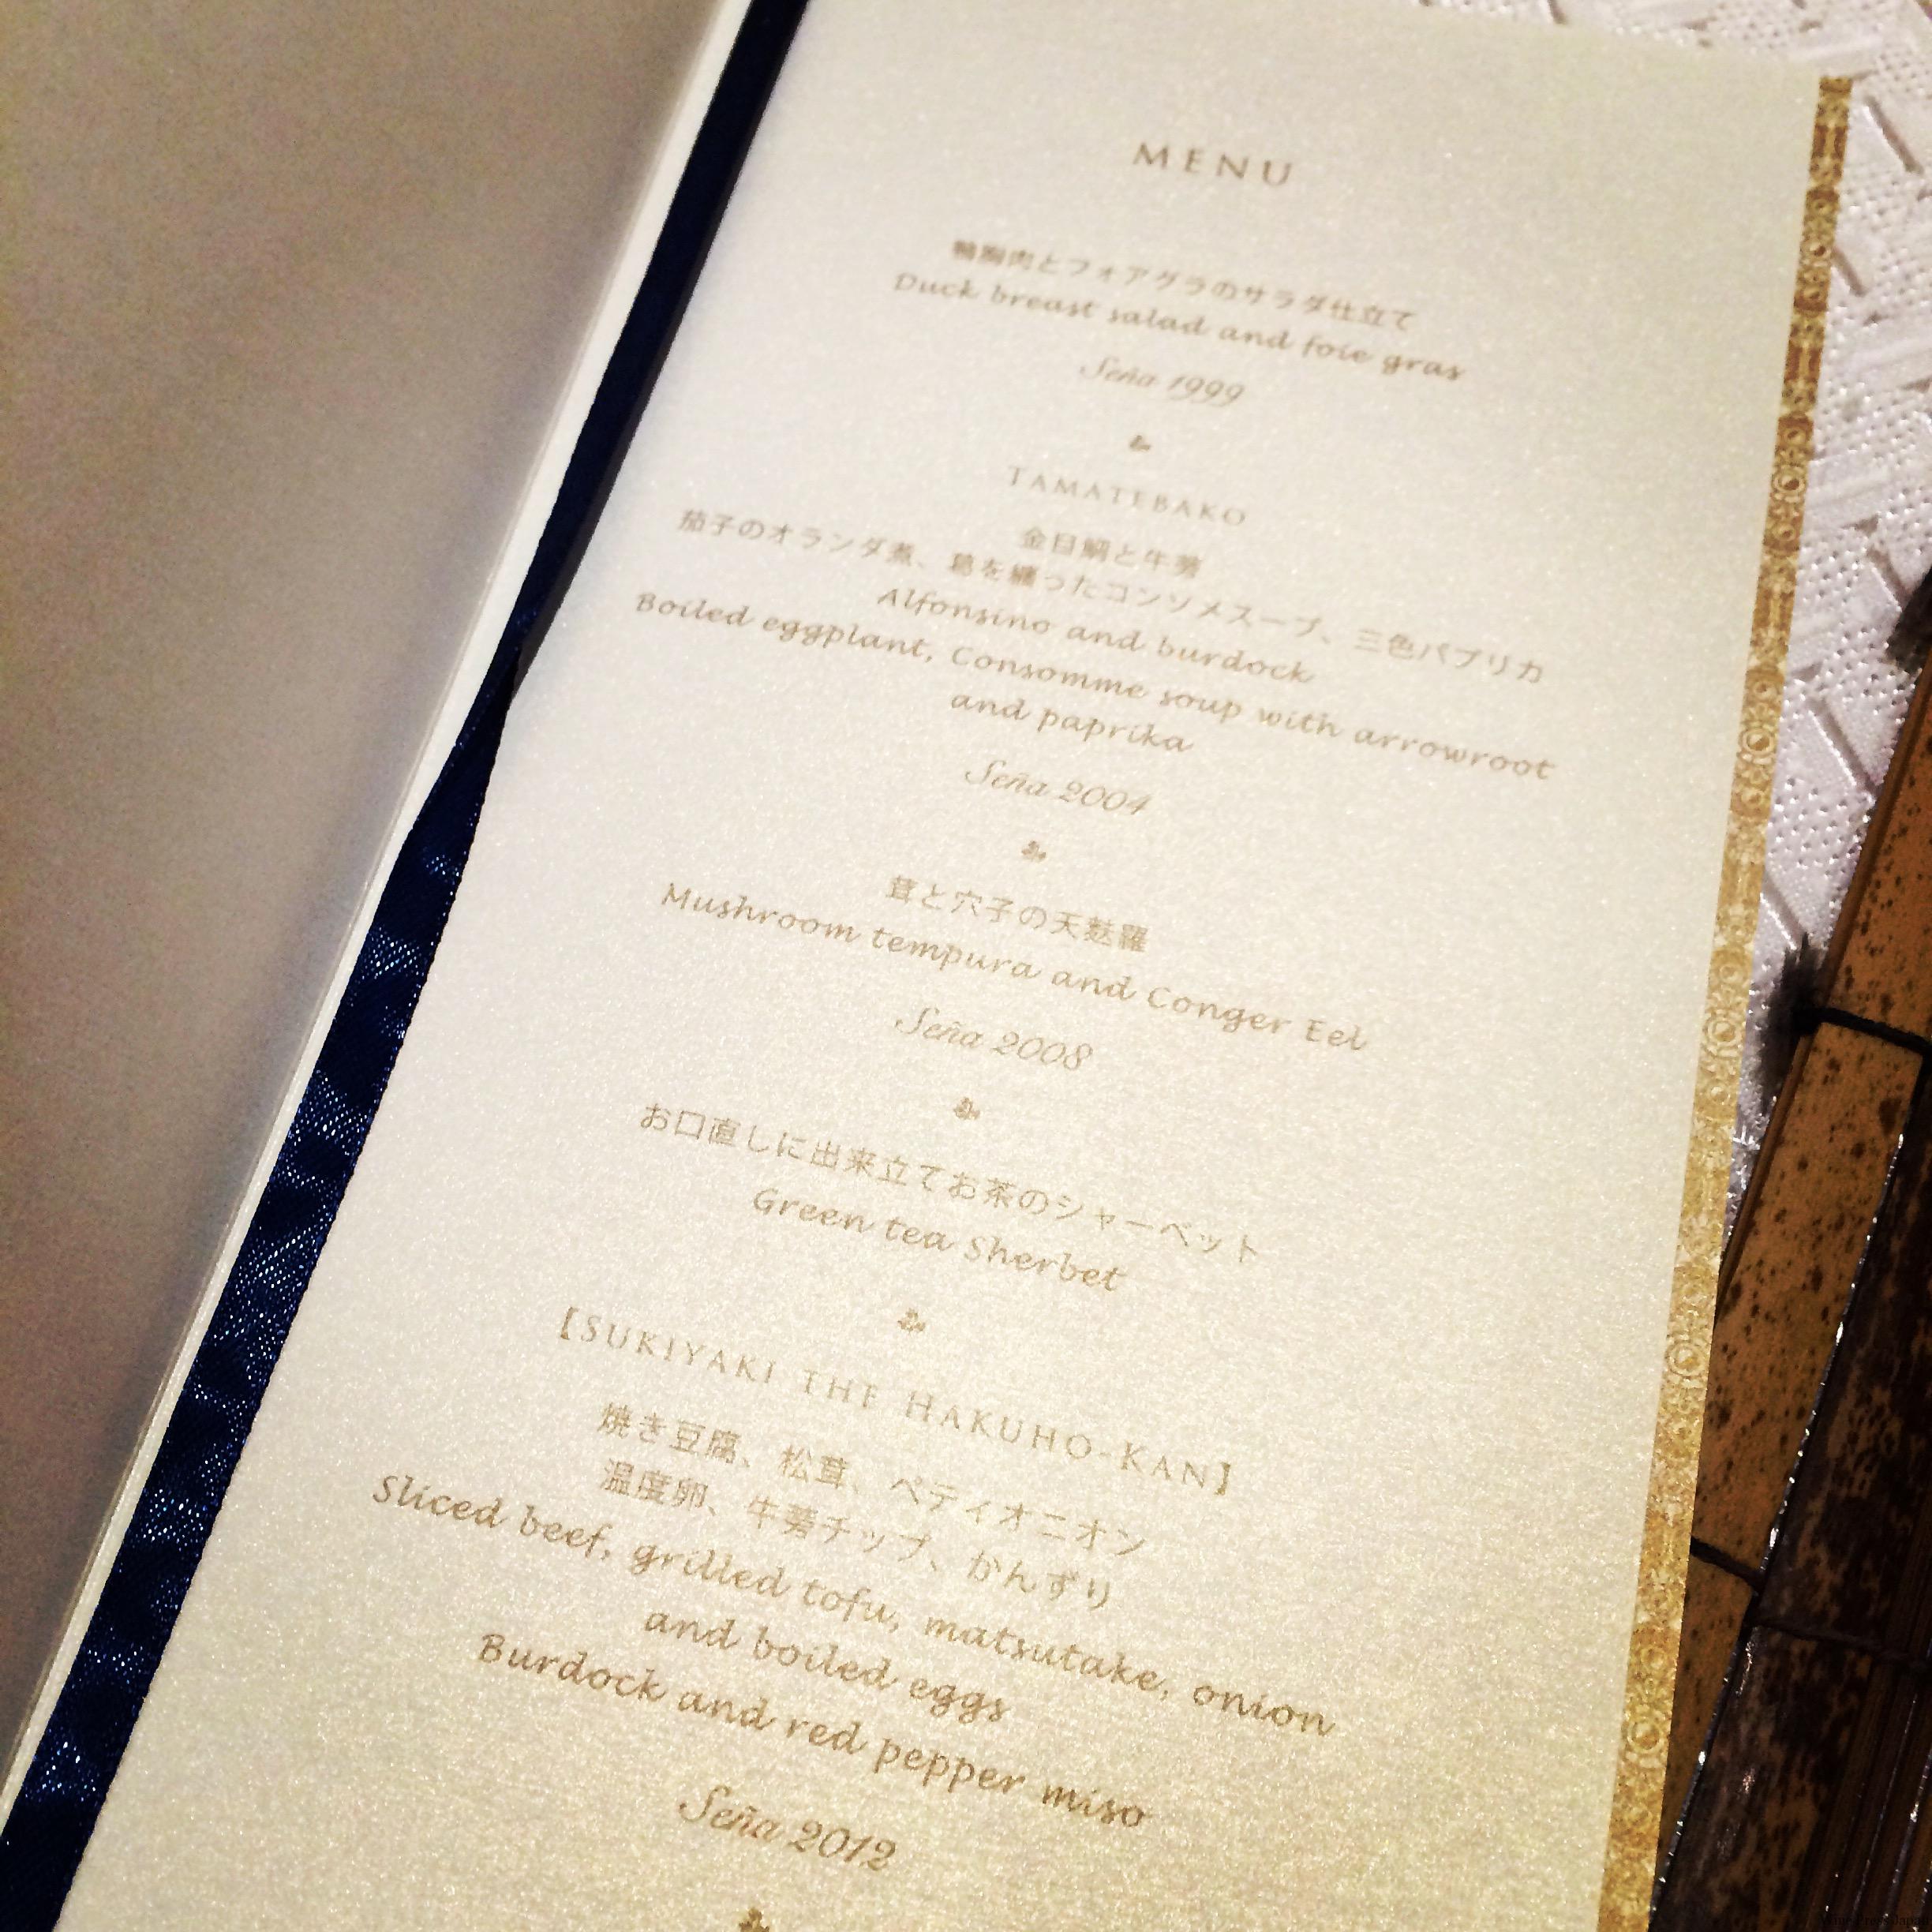 MENU
鴨胸肉とフォアグラのサラダ仕立て
Duck breast salad and foie gras
Seña 1999
TAMATEBAKO
金目鯛と牛蒡
茄子のオランダ煮、葛を纏ったコンソメスープ、三色パプリカ
Alfonsino and burdock
Boiled eggplant, Consomme soup with arrowroot
and paprika
Seña 2004
茸と穴子の天麩羅
Mushroom tempura and Conger Eel
Seña 2008
お口直しに出来立てお茶のシャーベット
Green tea Sherbet
【SUKIYAKI THE HAKUHO-KAN】
焼き豆腐、松茸、ペティオニオン
温度卵、牛蒡チップ、かんずり
Sliced beef, grilled tofu, matsutake, onion
and boiled eggs
Burdock and red pepper miso
Seña 2012